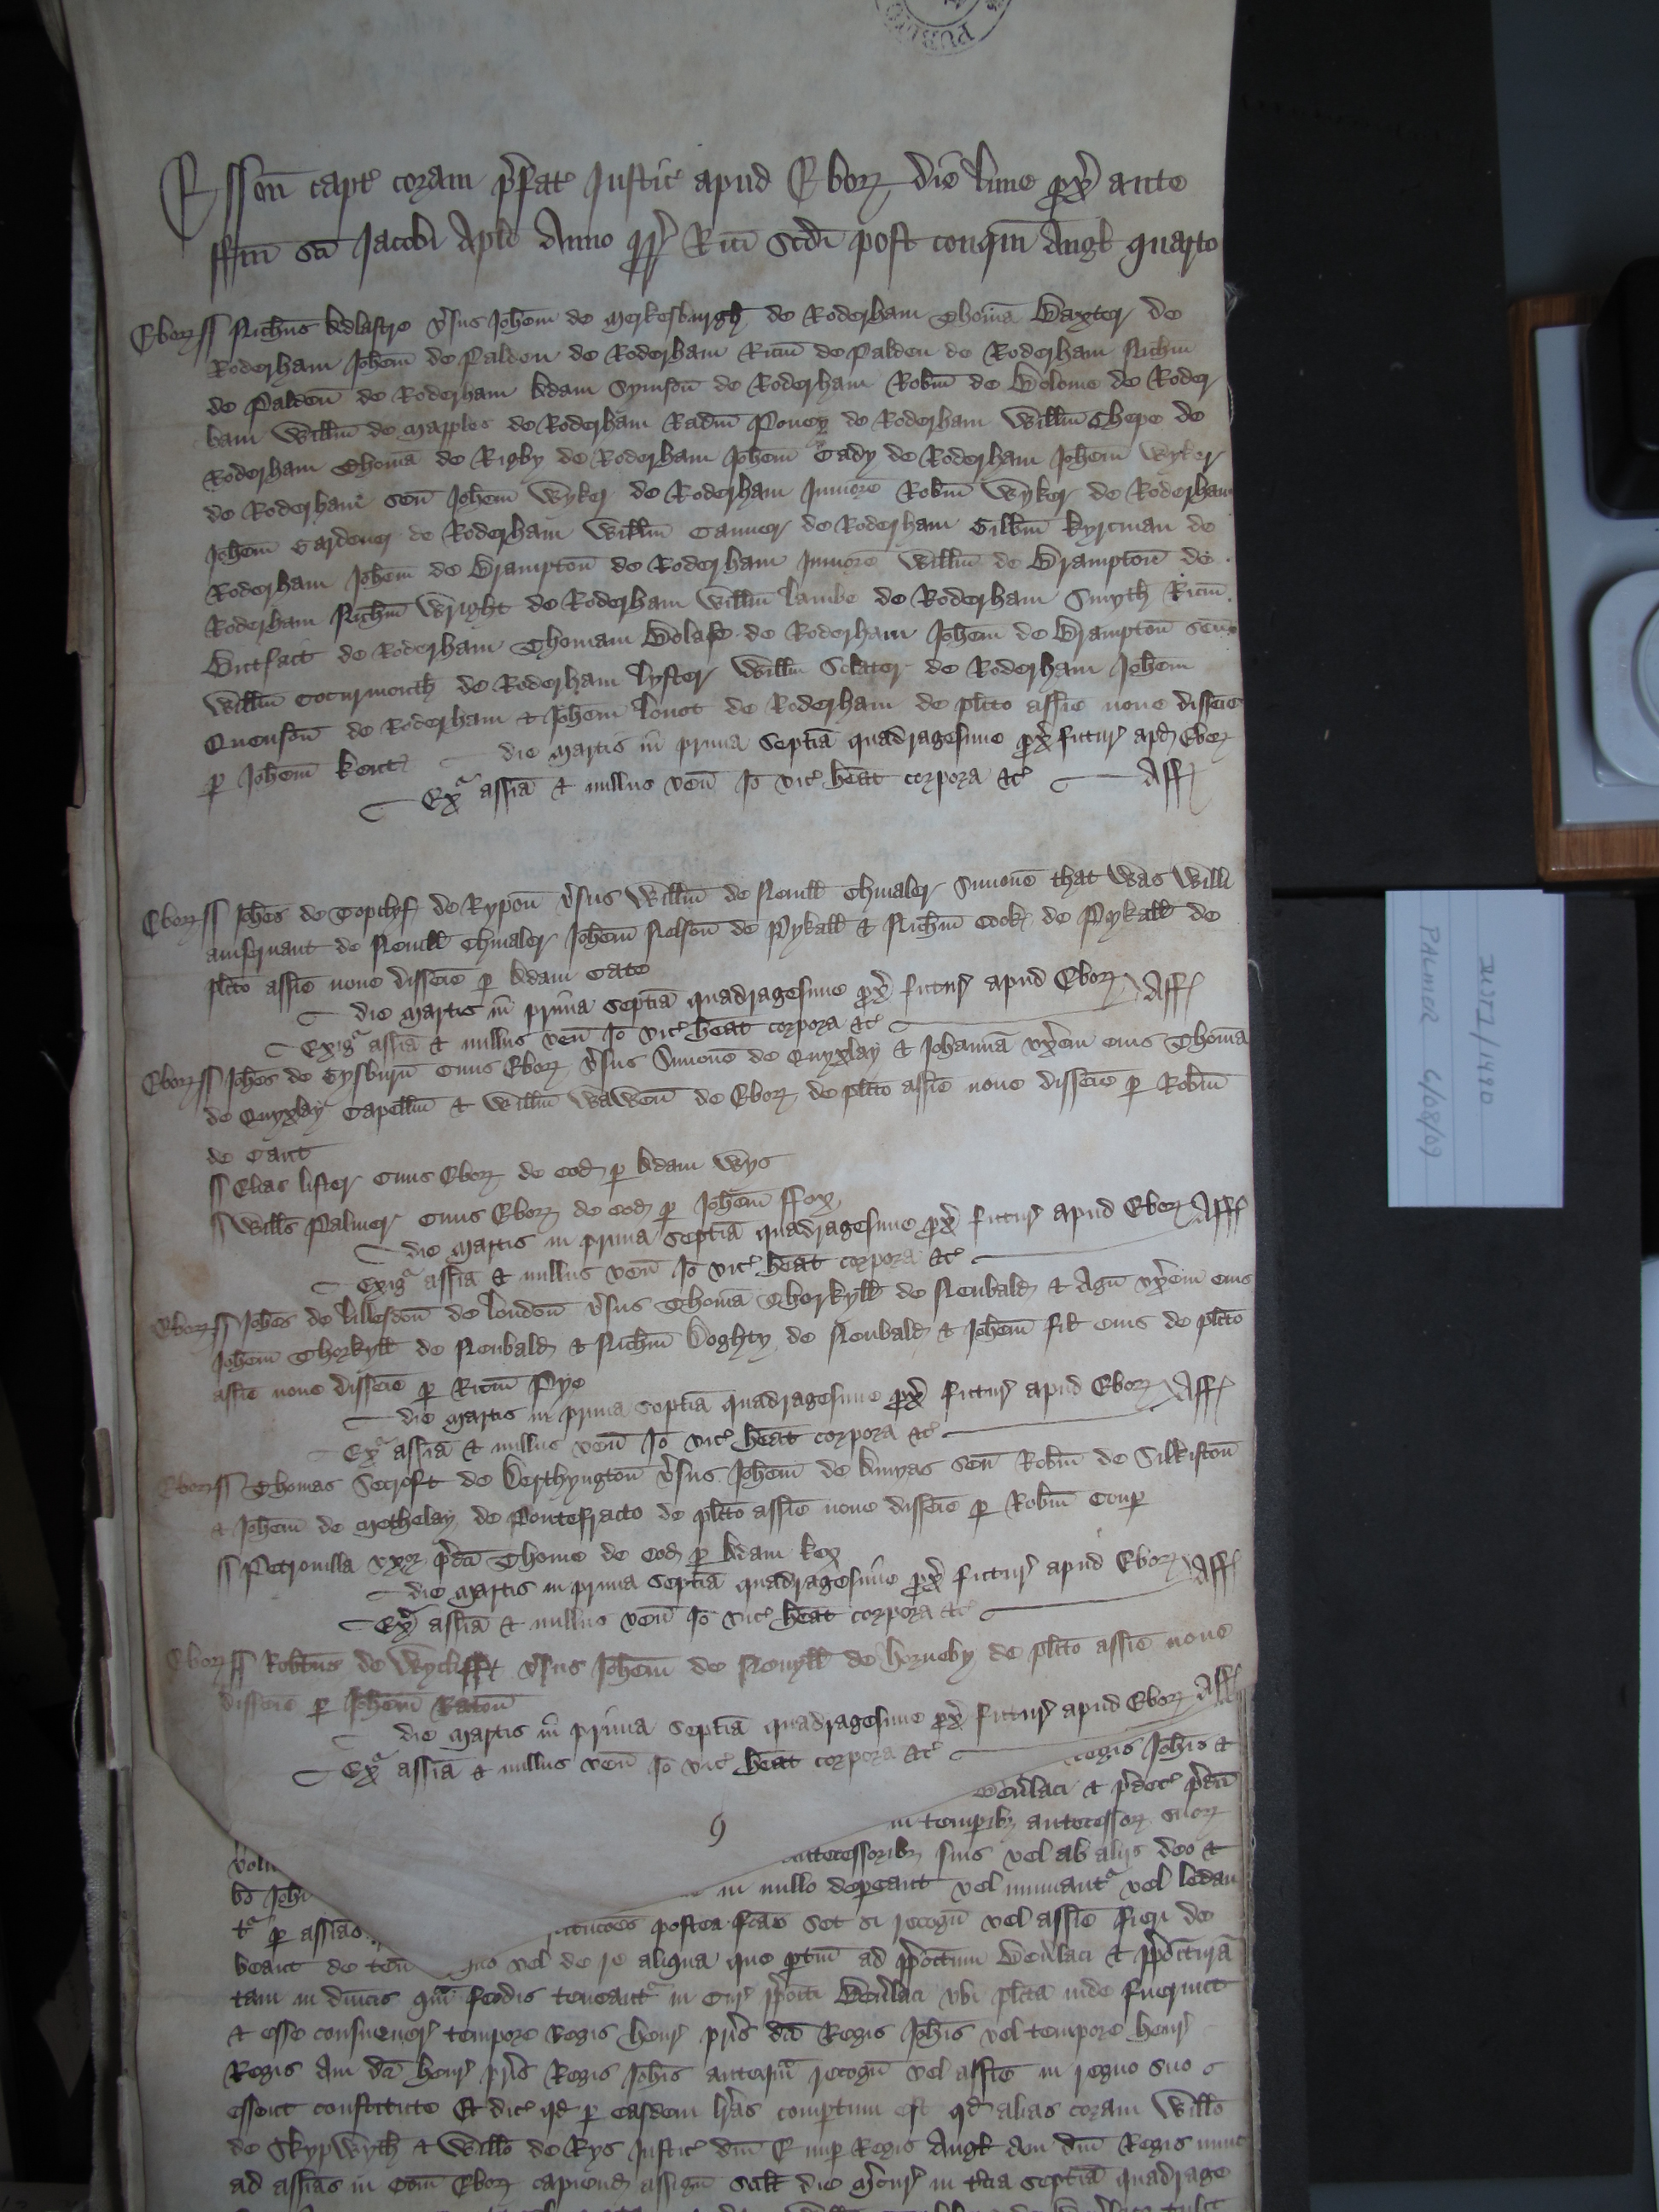 Esson capt coram p̄fat Justic apud Ebor die lune px ante
ffm sci Jacobi Apli Anno rr Rici scdi post conqm Angl quarto
Ebor ss Nichus Adlastre v̄sus Johem de Merkesburgh de Roderham Thomā Baxter de
Roderham Johem de Palden de Roderham Ricm de Palden de Roderham Nichm
de Palden de Roderham Adam Symson de Roderham Robm de Bolome de Roder
ham Willm de Mapples de Roderham Radm Poney de Roderham Willm Chepe de
Roderham Thomā de Rigby de Roderham Johem Cady de Roderham Johem Wyker
de Roderham sen Johem Wyker de Roderham Juniorē Robm Wyker de Roderham
Johem Gardener de Roderham Willm Tanner de Roderham Gilbm Kyrcman de
Roderham Johem de Brampton de Roderham Juniorē Willm de Brampton de
Roderham Nichm Wright de Roderham Willm Lambe de Roderham Smyth Ricm
de Roderham Thomam Bolase de Roderham Johem de Brampton sen
Willm Cocurmouth de Roderham lyster Willm Sclater de Roderham Johem
Quenson de Roderham & Johem Lovot de Roderham de plito assie noue disseie
p Johem Kent die Martis in prima septiā quadragesime px futur apd Ebor
Exa assiā & nullus ven Io vic heat corpora &c Aff
Ebor ss Johes de Topclyf de Rypon v̄sus Willm de Neuill Chiualer Simonē that was Willi
amseruant de Neuill Chiualer Johem Nelson de Pykall & Nichm Cook de Pykall de
plito assie noue disseie p Adam Gate
die Martis in prima septiā quadragesime px futur apud Ebor Aff
Exiga assiā & nullus ven Io vic heat corpora &c
Ebor ss Johes de Gysburn Ciuis Ebor v̄sus Simonē de Quyxlay & Johannā vxem eius Thomā
de Quyxlay Capellm & Willm Wawen de Ebor de plito assie noue disseie p Robm
de Gant
ss Elias lister Ciuis Ebor de eod p Adam Wys
ss Willms Palmer Ciuis Ebor de eod p Johem ffox
die Martis in prima septiā quadragesime px futur apud Ebor Aff
Exiga assiā & nullus ven Io vic heat corpora &c
Ebor ss Johes de Lillesdon de London v̄sus Thomā Thorkyll de Neubald & Agn vxem eius
Johem Thorkyll de Neubald & Nichm Doghty de Neubald & Johem fil eius de plito
assie noue disseie p Ricm Pye
die Martis in prima septiā quadragesime px futur apud Ebor Aff
Exa assiā & nullus ven Io vic heat corpora &c
Ebor ss Thomas Secroft de Derthyngton v̄sus Johem de Amyas sen Robm de Silkiston
& Johem de Methelay de Pontefracto de plito assie noue disseie p Robm Coup
ss Petronilla vxor p̄dci Thome de eod p Adam Kex
die Martis in prima septiā quadragesime px futur apud Ebor Aff
Exa assiā & nullus ven Io vic heat corpora &c
Ebor ss Robtus de Wycliff v̄sus Johem de Neuyll de Horneby de plito assie noue
disseie p Johem Raton
die Martis in prima septiā quadragesime px futur apud Ebor Aff
Exa assiā & nullus ven Io vic heat corpora &c
regis Johis &
Beūlaci & p̄dec p̄dcm
in temporib antecessor suor
antecessorib suis vel ab alijs deo &
bo Johi in nullo depeant vel minuant vel ledan
t p assias postea fcas Set si recogn vel assie fieri de
beant de ten vel de re aliqua que ptin ad p̄poitum Beūlaci & p̄poituram
tam in dnicis qm feodis teneant in Cur p̄poiti Beūlaci vbi plita inde fuerint
& esse consueuer tempore Regis Henr pris dci Regis Johis vel tempore Henr
Regis Aui dci Henr pris Regis Johis anteqm recogn vel assie in regno suo
essent constitute Et dic qd p easdem lras comptum est qd alias coram Willo
de Skypwyth & Willo de Rys Justic dni E nup Regis Angl Aui dni Regis nunc
ad assias in Com Ebor capiend assign scilt die M̄cur in t̄cia septiā quadrage
9
JUST1/1490
PALMER 6/08/09